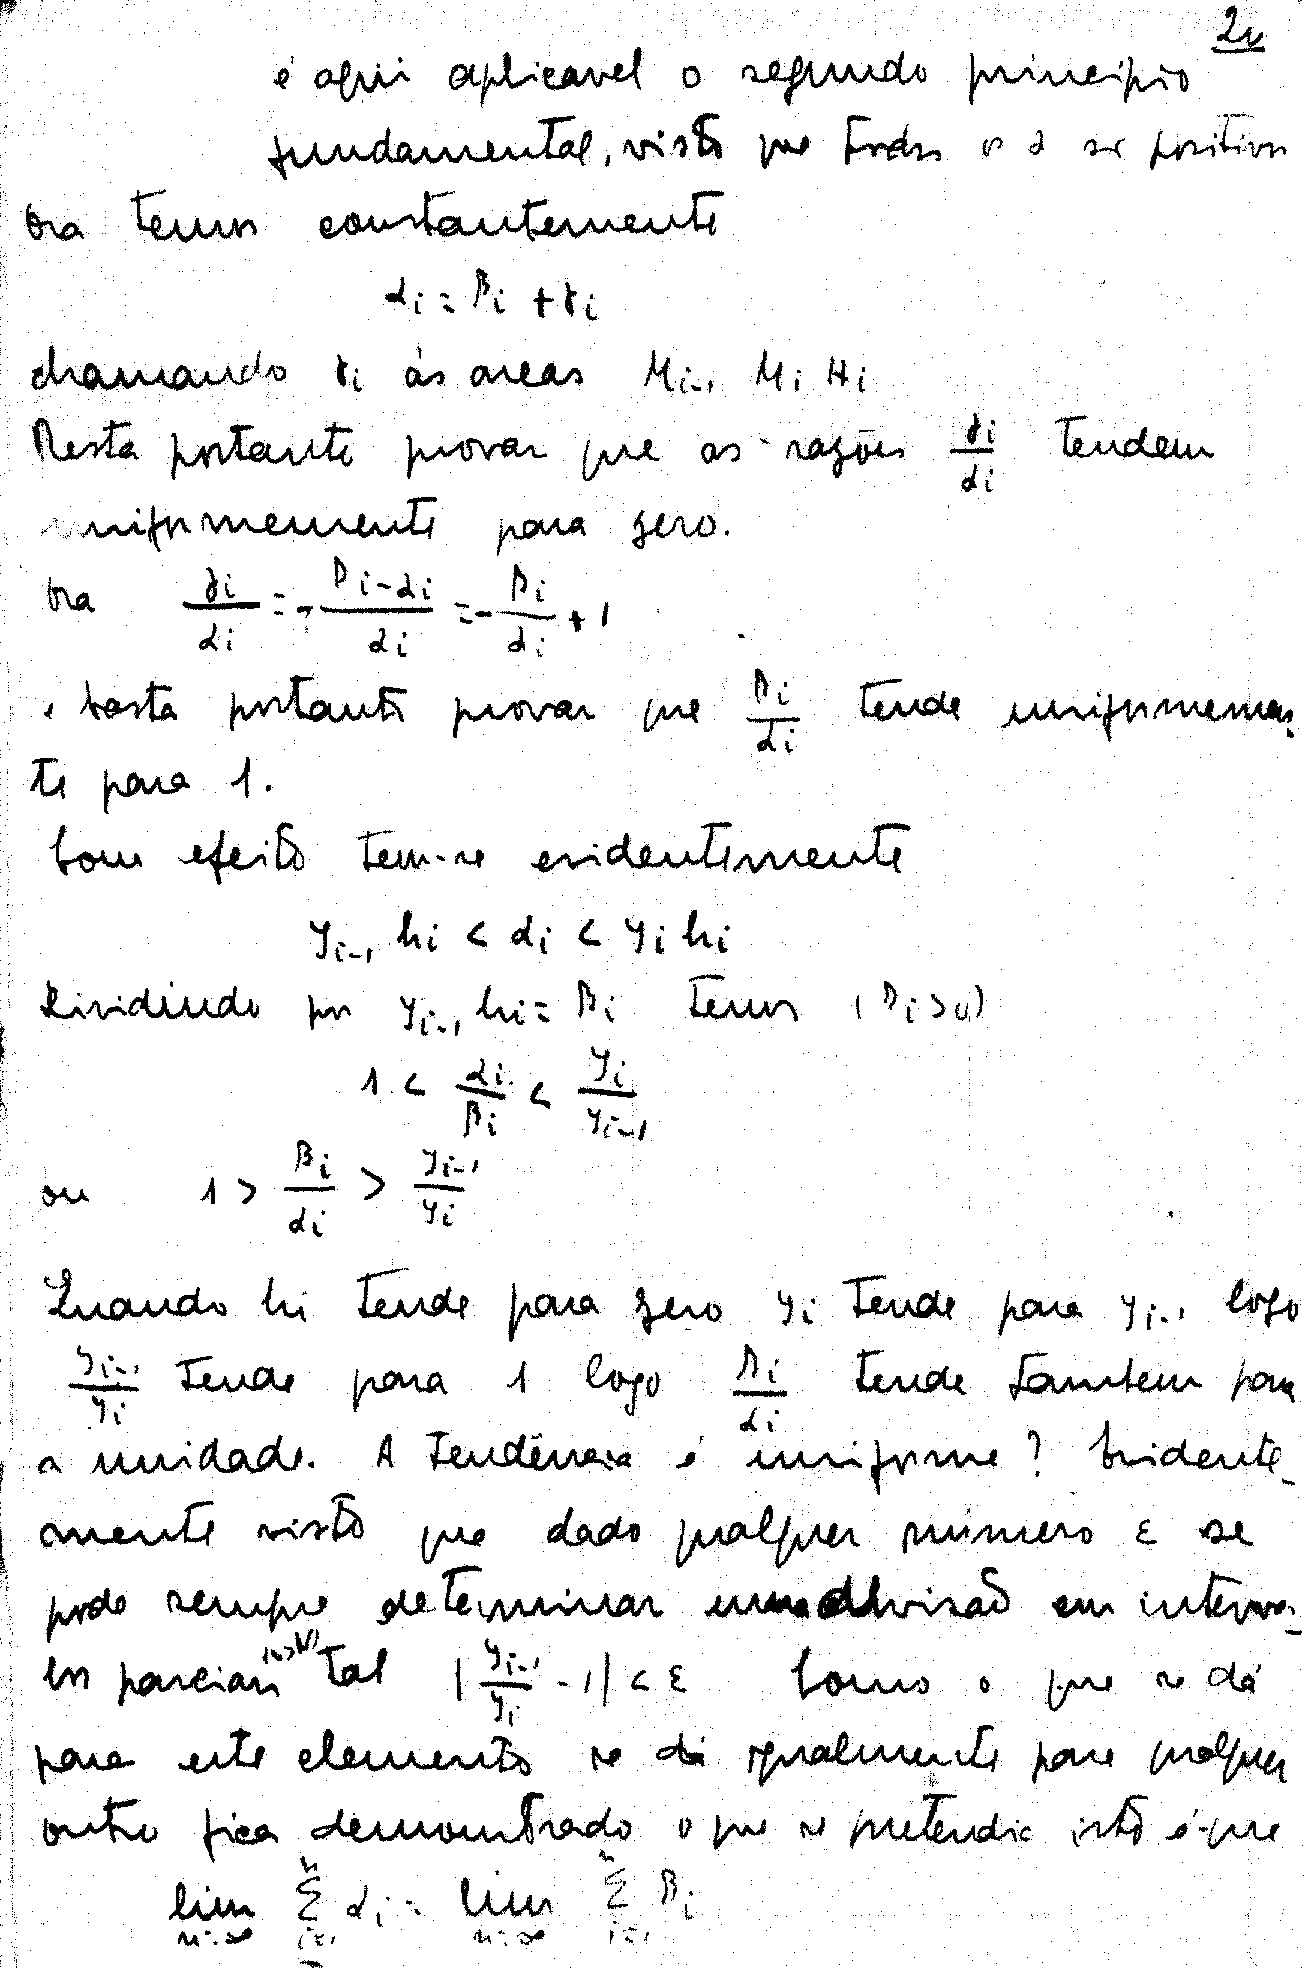 2v
é aqui aplicavel o segundo principio
fundamental, visto que todos os α são positivos
Ora temos constantemente
αi = βi + γi
chamando γi às areas Mi-1 Mi Hi
Resta portanto provar que as razões γi/αi tendem
uniformemente para zero.
Ora γi/αi = - (βi - αi)/αi = - βi/αi + 1
e basta portanto provar que βi/αi tende uniformemen-
te para 1.
Com efeito tem-se evidentemente
yi-1 hi < αi < yi hi
Dividindo por yi-1 hi = βi temos (βi > 0)
1 < αi/βi < yi/yi-1
ou 1 > βi/αi > yi-1/yi
Quando hi tende para zero yi tende para yi-1 logo
yi-1/yi tende para 1 logo βi/αi tende tambem para
a unidade. A tendência é uniforme? Evidente-
mente visto que dado qualquer número ε se
pode sempre determinar uma divisão em interva-
los parciais tal |yi-1/yi - 1| < ε Como o que se dá
para este elemento se dá igualmente para qualquer
outro fica demonstrado o que se pretendia isto é que
lim n=∞ Σ i=1 n αi = lim n=∞ Σ i=1 n βi